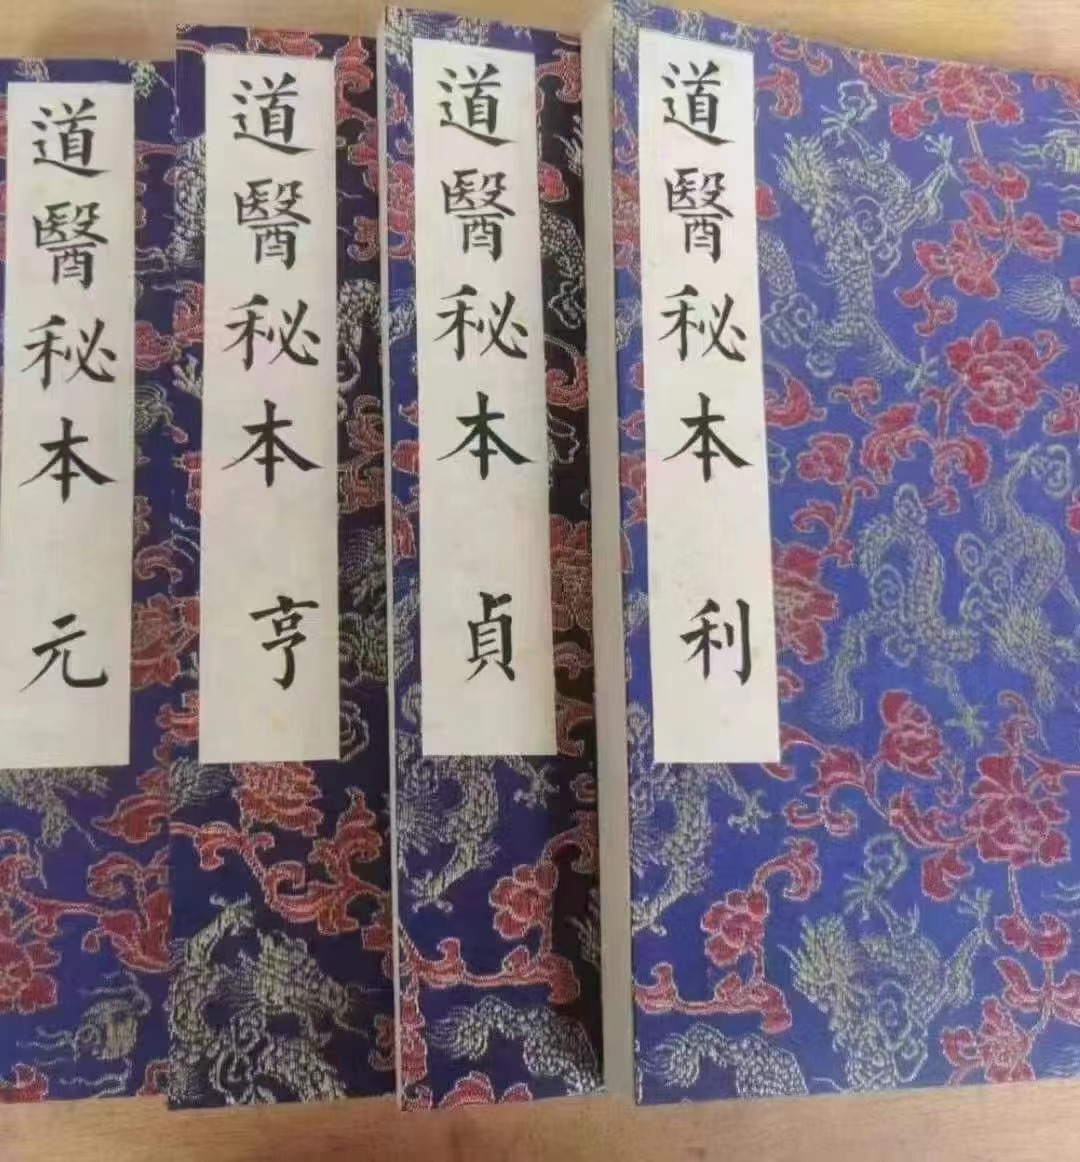 道醫秘本 元
道醫秘本 亨
道醫秘本 貞
道醫秘本 利